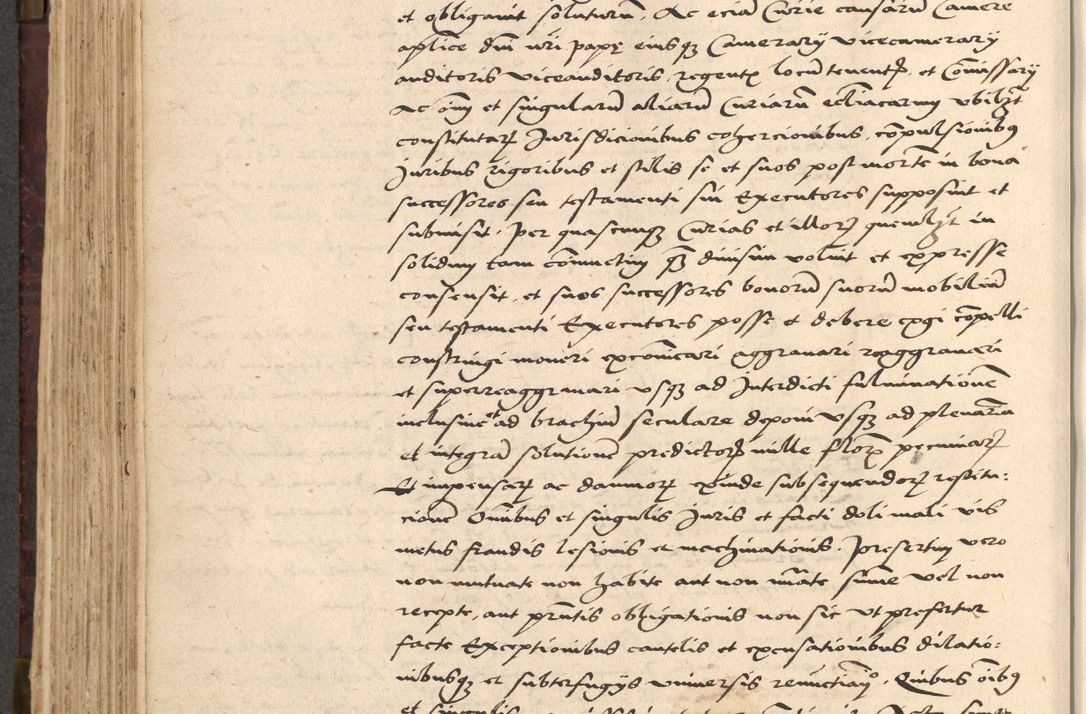 et obligavit soluturum. Ac eciam Curie causarum Camere
aplice dni nri pape eiusq Camerarij vicecamerarij
auditoris viceauditoris regentis locum tenentis et Comissarij
Ac oim et singularum aliarum Curiarum ecliacarum ubilibet
constitutar Jurisdicionibus cohercionibus compulsionibus
Juribus rigoribus et stilis se et suos post mortem in bona
successores seu testamenti sui Executores supposuit et
submisit. Per quascunq Curias et illor quemlibet in
solidum tam coniunctim quam divisim voluit et expresse
consensit, et suos successores bonorum suorum mobilium
seu testamenti Executores posse et debere cogi compelli
constringi moneri excomicari aggravari reaggravari
et superreaggravari usq ad Interdicti fulminationem
inclusive et ad brachium seculare deponi usq ad plenariam
et integram solutionem predictor mille floren pecuniar
Et impensar ac damnor exinde subsequendor restitu:
cionem Omnibus et singulis Juris et facti doli mali vis
metus fraudis lesionis et machinationis. Presertim vero
non mutuate non habite aut non nuate summe vel non
recepte, aut pntis obligationis non sic ut prefertur
facte Exceptionibus cautelis et excusationibus dilatio:
nibusq et subterfugijs universis renunctiavit. Quibus oibus
et singulis